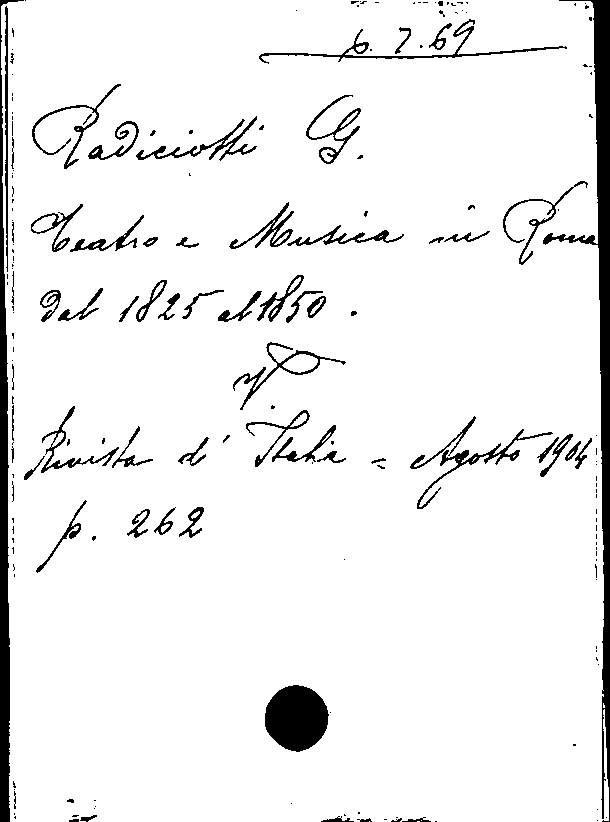 6. 7. 69
Radiciotti G.
Teatro e Musica in Roma
dal 1825 al 1850.
V.
Rivista d' Italia = Agosto 1904
p. 262